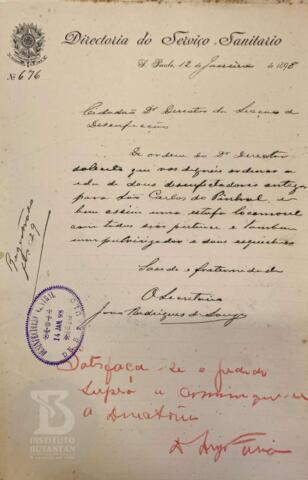 Directoria do Serviço Sanitario
Nº 676
S. Paulo, 12 de Janeiro de 1898
Cidadão Dr Director do Serviço de
Desinfecção
De ordem do Dr Director
solicito que vos digneis ordenar a
ida de dous desinfectadores
para São Carlos do Pinhal,
bem assim uma estufa locomovel
com todos seus pertences e tambem
um pulverizador e dous
Saude e fraternidade
O Secretario
João Rodrigues de
24 JAN. 98
Satisfaça-se o pedido
supra e communique-se
a Directoria
INSTITUTO
BUTANTAN